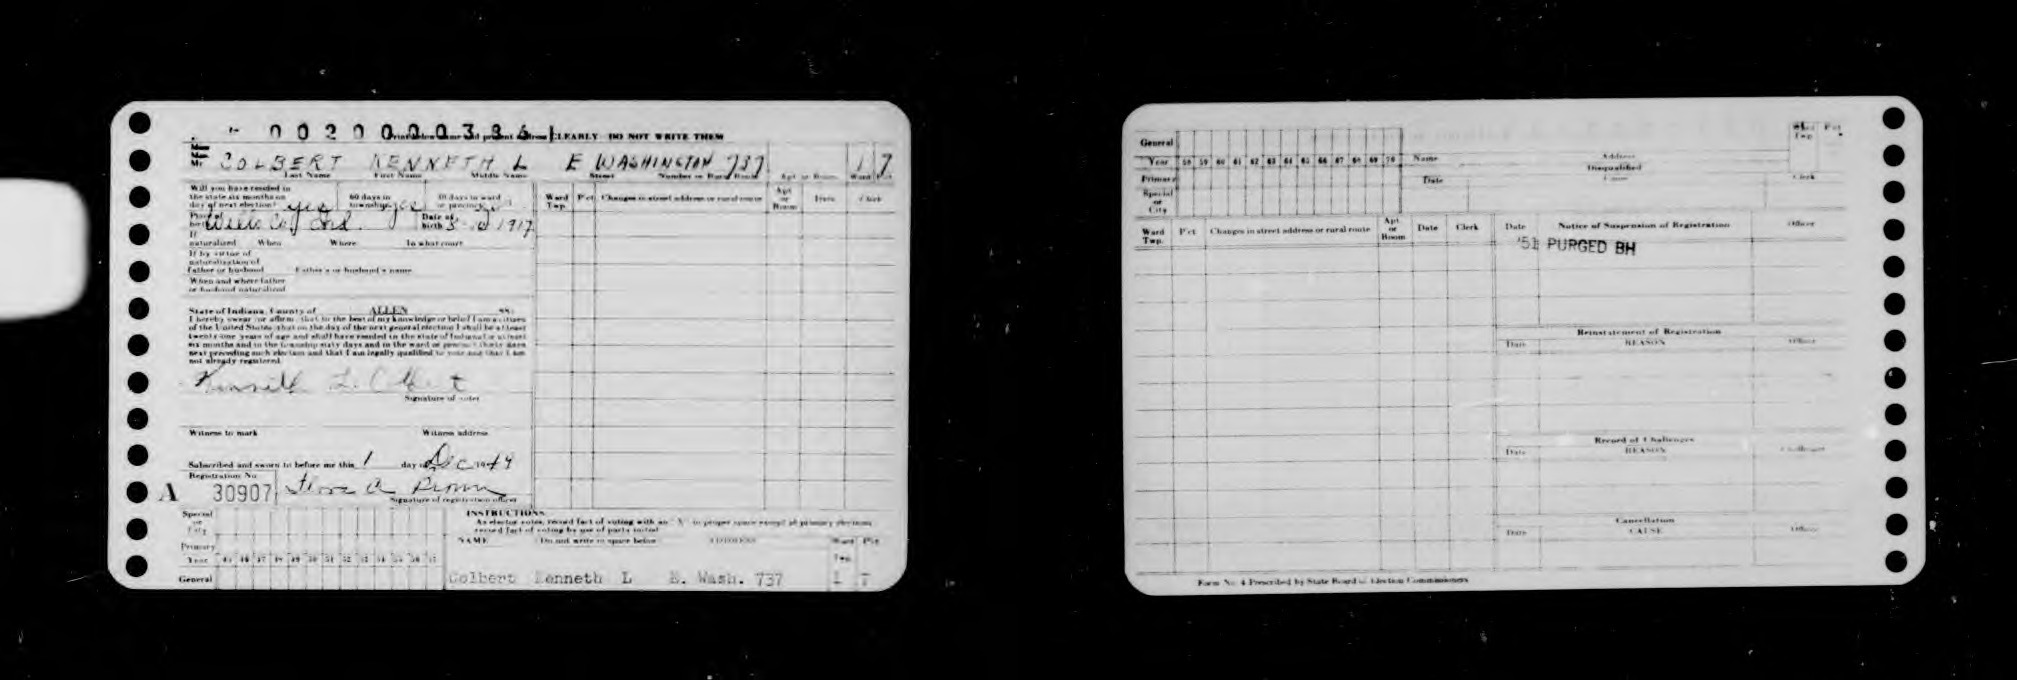 0020000336
CLEARLY DO NOT WRITE THEM
Mr COLBERT KENNETH L E WASHINGTON 737 1 7
Last Name First Name Middle Name Street Number or Rural Route Apt or Room Ward
Will you have resided in
the state six months on 60 days in 30 days in ward
day of next election? yes township yes or precinct
Place of birth Wells Co, Ind. Date of birth 5 1917
If
naturalized When Where In what court
If by virtue of
naturalization of
father or husband Father's or husband's name
When and where father
or husband naturalized
Ward Twp. P'ct Changes in street address or rural route Apt or Room Date Clerk
State of Indiana, County of ALLEN ss:
I hereby swear (or affirm) that to the best of my knowledge or belief I am a citizen
of the United States; that on the day of the next general election I shall be at least
twenty-one years of age and shall have resided in the state of Indiana at least
six months and in the township sixty days and in the ward or precinct thirty days
next preceding such election and that I am legally qualified to vote and that I am
not already registered.
Kenneth L. Colbert
Signature of voter
Witness to mark Witness address
Subscribed and sworn to before me this 1 day of Dec 1944
Registration No
A 30907
Signature of registration officer
Special
or
City
Primary
Year 45 46 47 48 49 50 51 52 53 54 55 56 57
General
INSTRUCTIONS
As elector votes, record fact of voting with an "X" in proper space except at primary elections
record fact of voting by use of party initial
NAME Do not write in space below ADDRESS Ward Twp P'ct
Colbert Kenneth L E. Wash. 737 1 7
General
Year 58 59 60 61 62 63 64 65 66 67 68 69 70
Primary
Special
or
City
Name Address Twp P'ct
Disqualified
Date Cause Clerk
Ward Twp. P'ct Changes in street address or rural route Apt. or Room Date Clerk
Date Notice of Suspension of Registration Officer
'51 PURGED BH
Reinstatement of Registration
Date REASON Officer
Record of Challenges
Date REASON Challenger
Cancellation
Date CAUSE Officer
Form No. 4 Prescribed by State Board of Election Commissioners